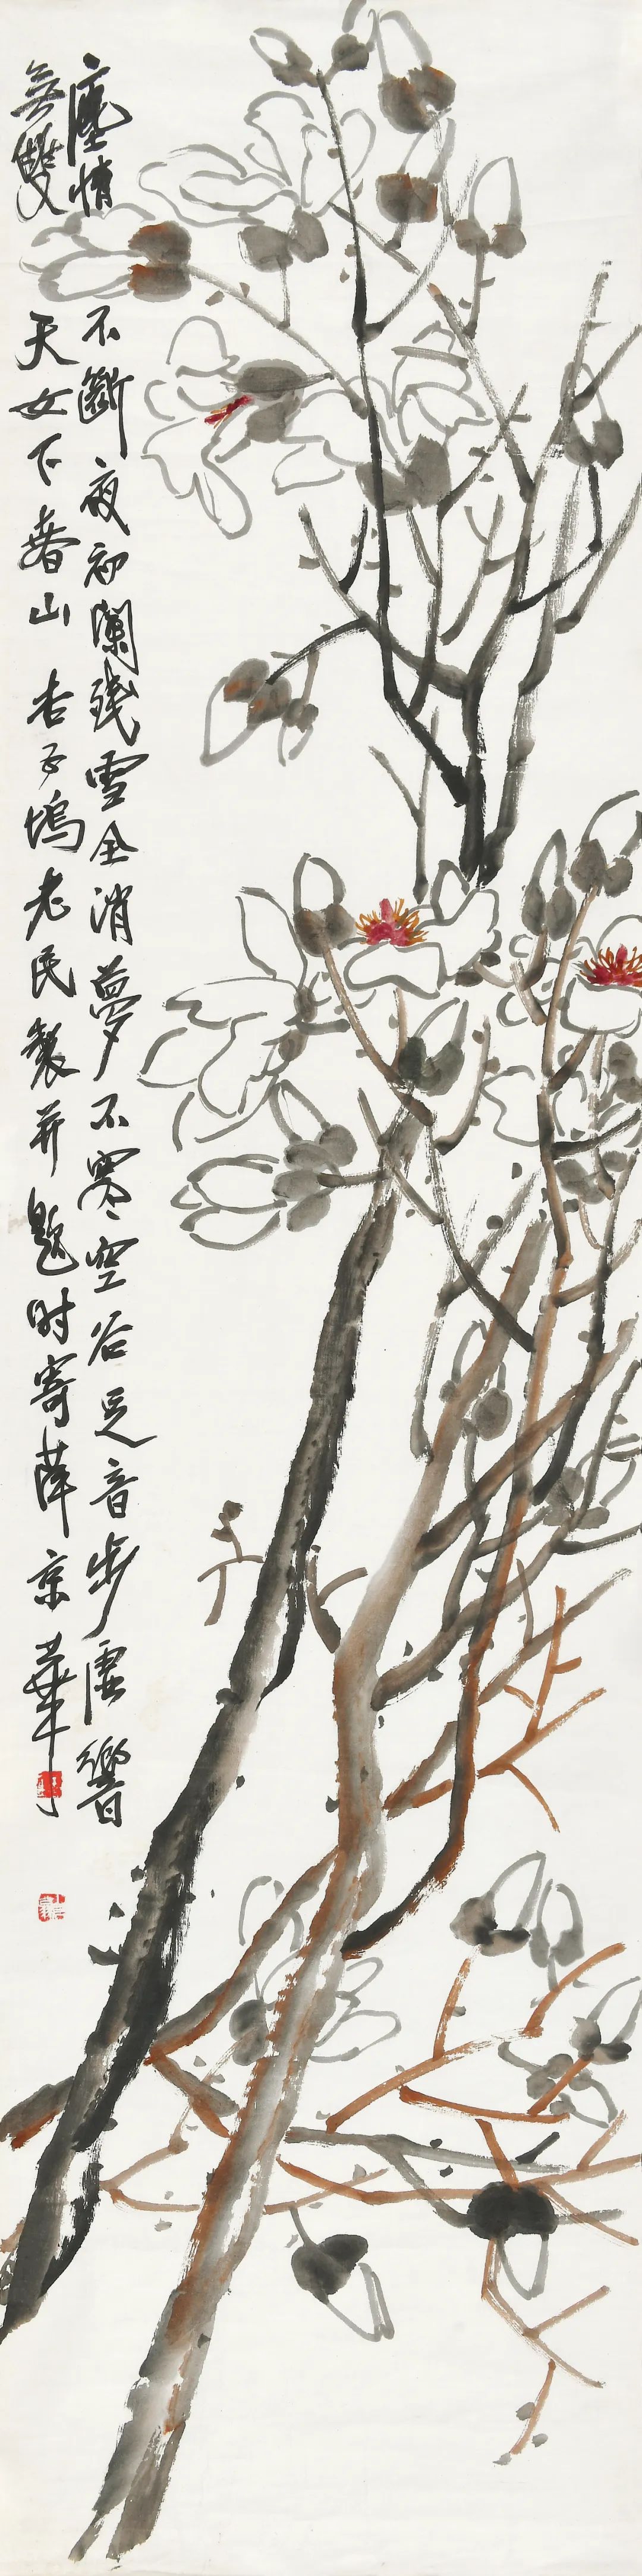 塵情不斷夜初闌殘雪全消夢不寒空谷足音步虛響
無雙天女下春山杏子塢老民製并題時寄萍京華